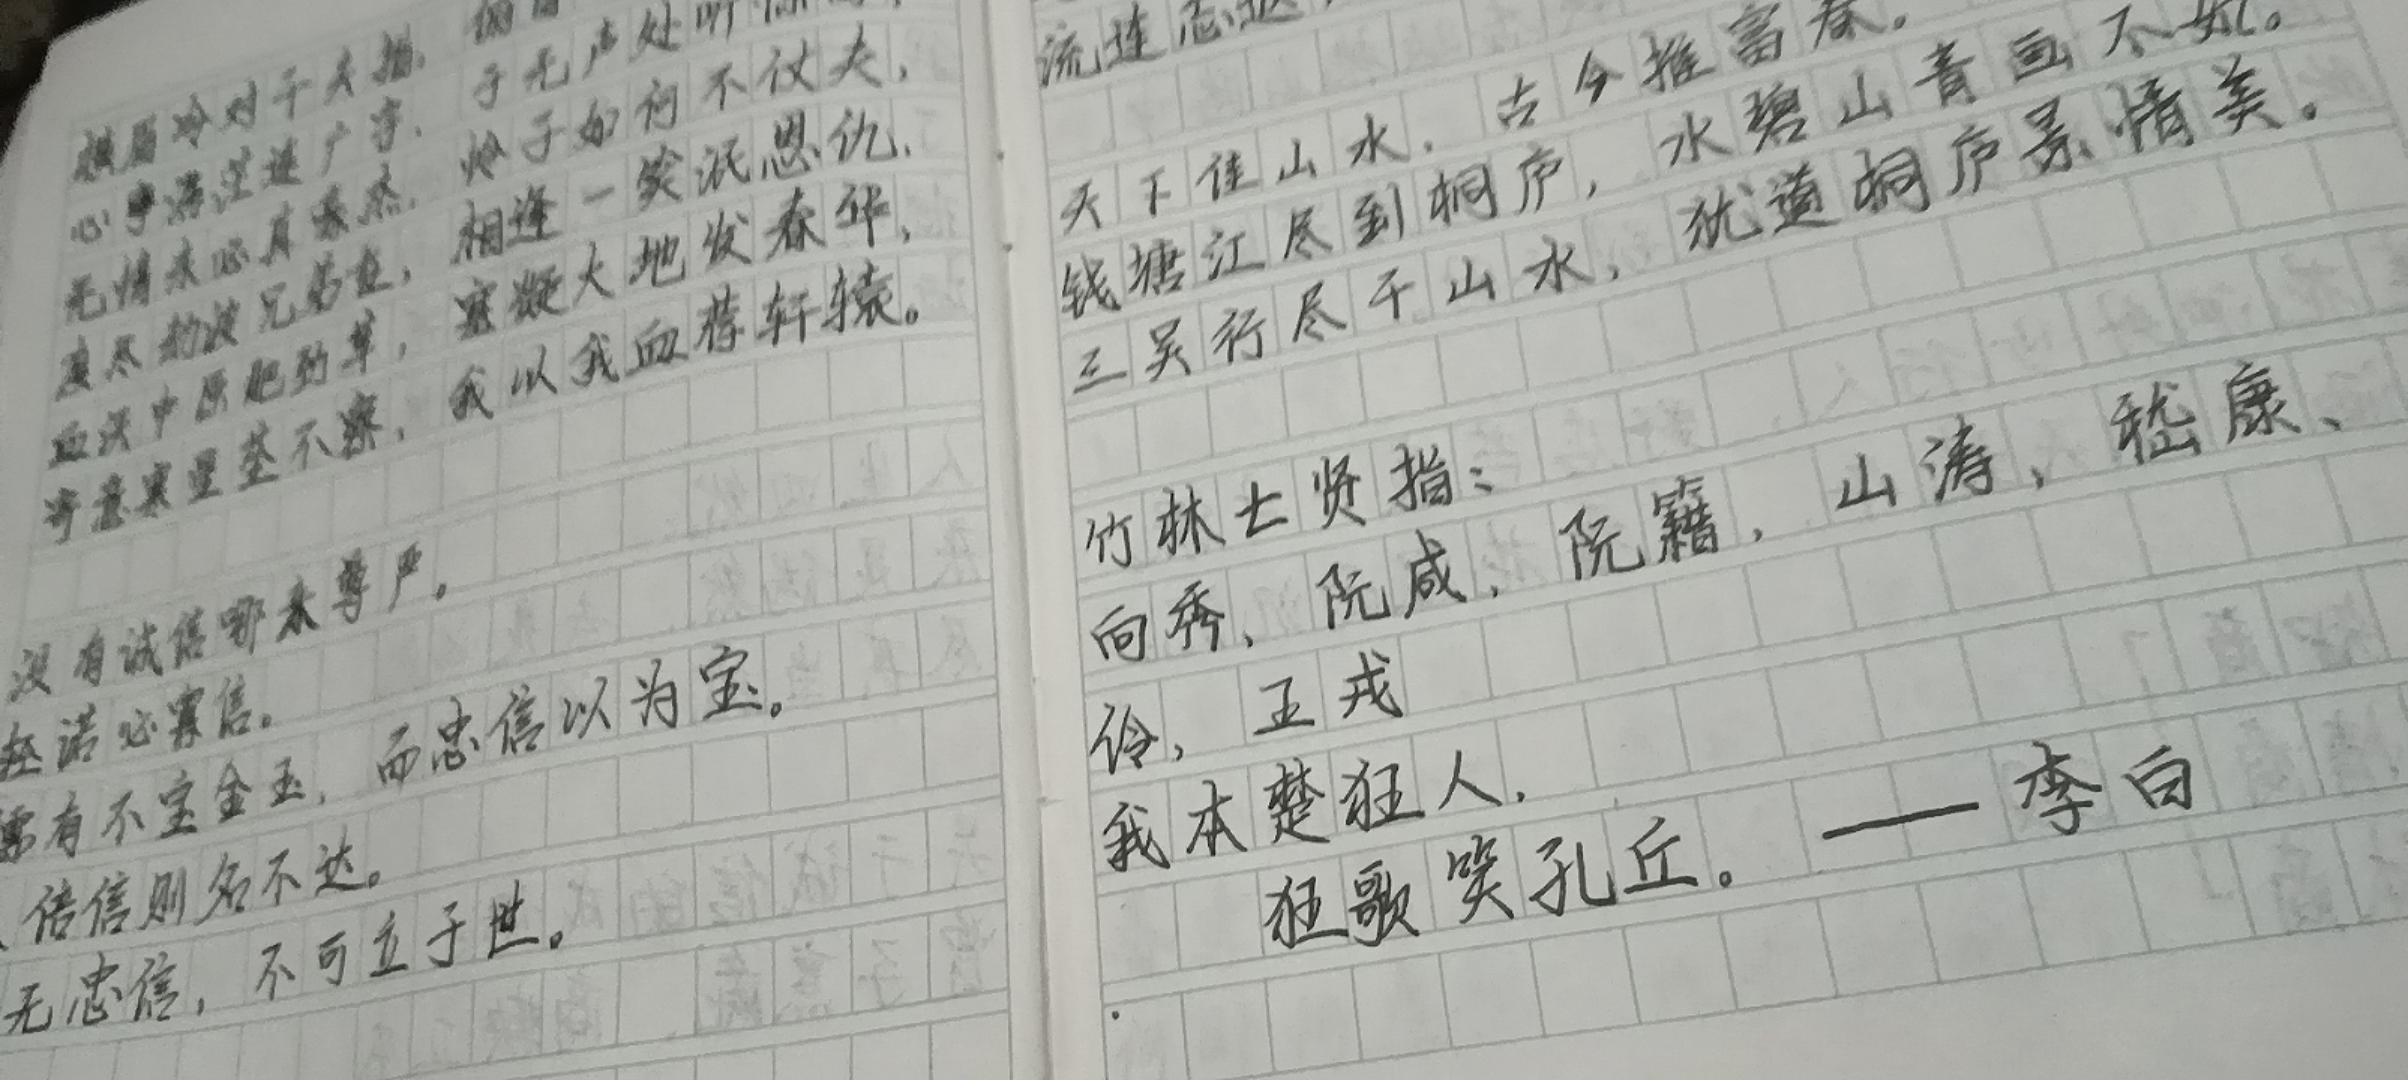 横眉冷对千夫指，
心事浩茫连广宇，于无声处听惊
无情未必真豪杰，怜子如何不丈夫，
渡尽劫波兄弟在，相逢一笑泯恩仇，
血沃中原肥劲草，寒凝大地发春华，
寄意寒星荃不察，我以我血荐轩辕。
没有诚信哪来尊严。
轻诺必寡信。
儒有不宝金玉，而忠信以为宝。
倍信则名不达。
无忠信，不可立于世。
流连忘返
天下佳山水，古今推富春。
钱塘江尽到桐庐，水碧山青画不如。
三吴行尽千山水，犹道桐庐景情美。
竹林七贤指：
向秀、阮咸、阮籍、山涛、嵇康、
伶、王戎
我本楚狂人，
狂歌笑孔丘。——李白